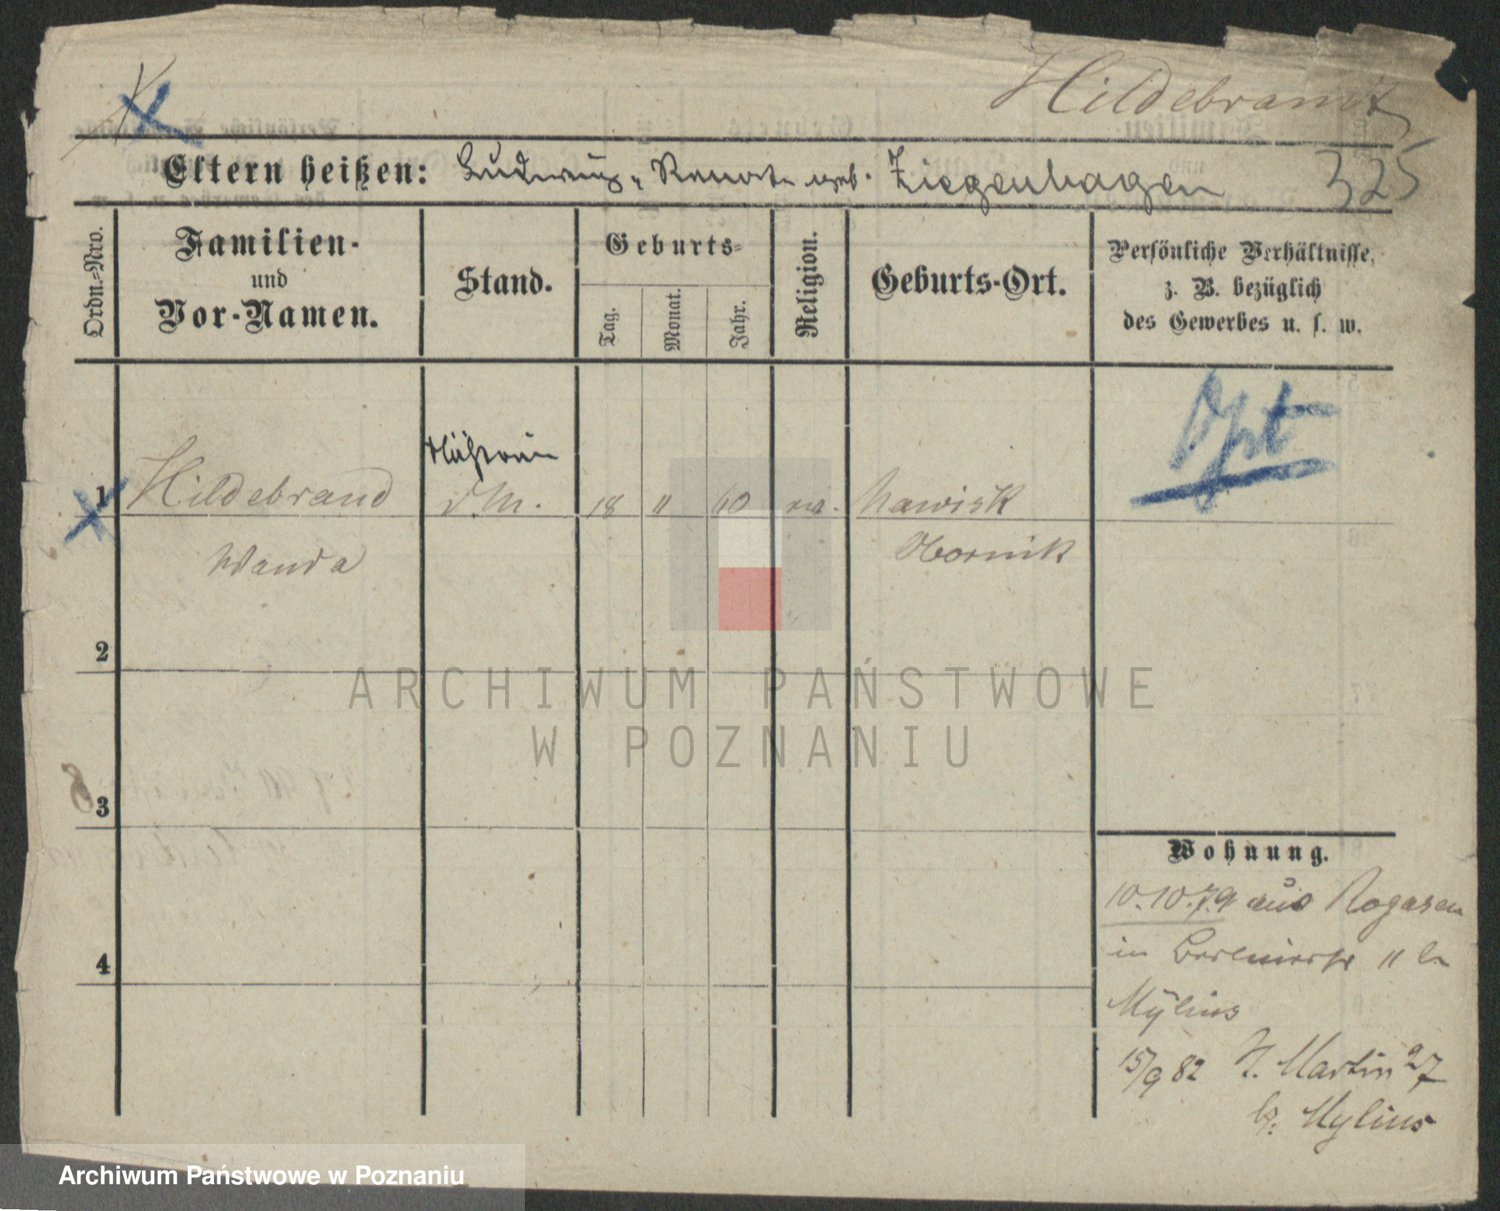 Hildebrandt
Eltern heißen: Ludwig u. Renate geb. Ziegenhagen 325
Ordn.-Nro.
Familien-
und
Vor-Namen.
Stand.
Geburts-
Tag.
Monat.
Jahr.
Religion.
Geburts-Ort.
Persönliche Verhältnisse,
z. B. bezüglich
des Gewerbes u. s. w.
Opt
Nähterin
1 Hildebrand d.M. 18 " 60 ev. Nawisk
Wanda Obornik
2
3
4
Wohnung.
10.10.79 aus Rogasen
in 11 b
Mylius
15/9 82 St. Martin 27
b. Mylius
ARCHIWUM PAŃSTWOWE
W POZNANIU
Archiwum Państwowe w Poznaniu